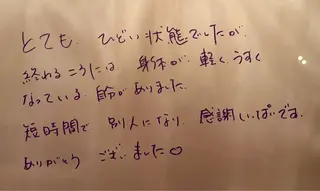 とても、ひどい状態でしたが
終わるころには 身体が 軽く、うすく
なっている 自分が ありました。
短時間で 別人になり、感謝しいっぱいです。
ありがとう ございました♡